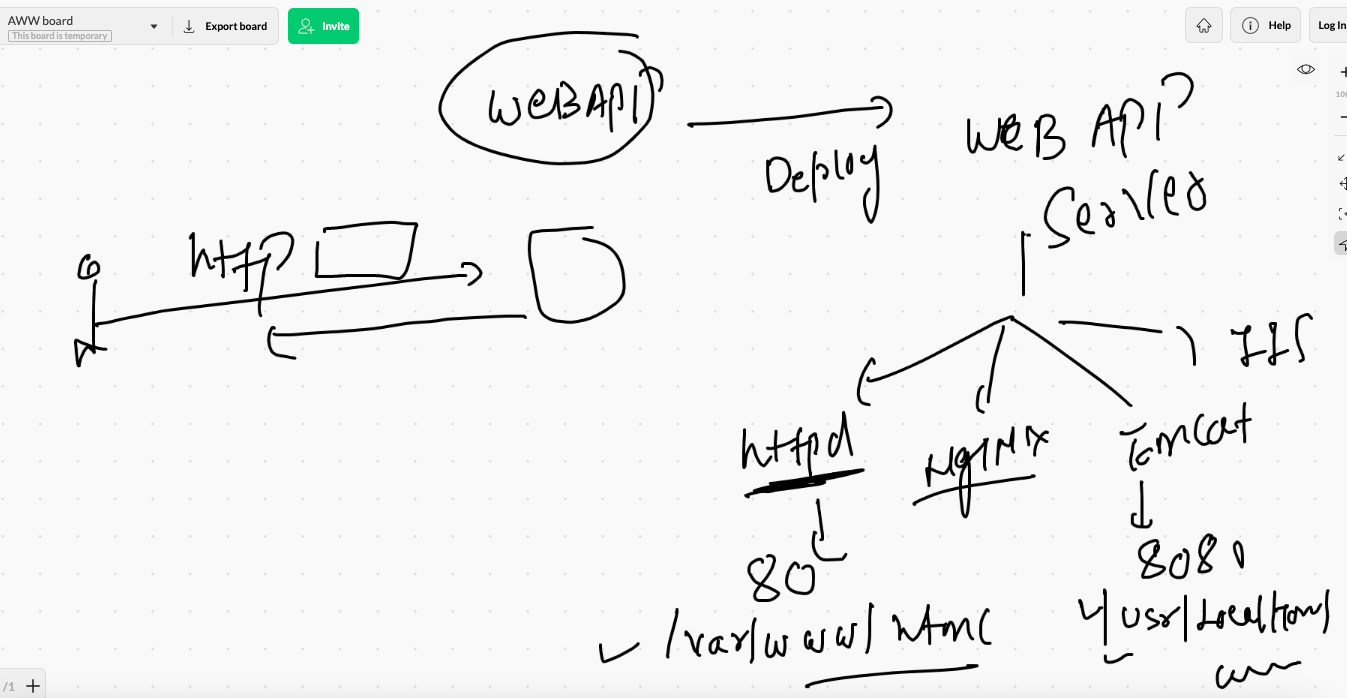 AWW board
This board is temporary
Export board
Invite
Help
Log In
WEB API
Deploy
WEB API
Server
http
IIS
httpd
NgINX
Tomcat
80
8080
/var/www/html
/usr/Local/Tom/
/1